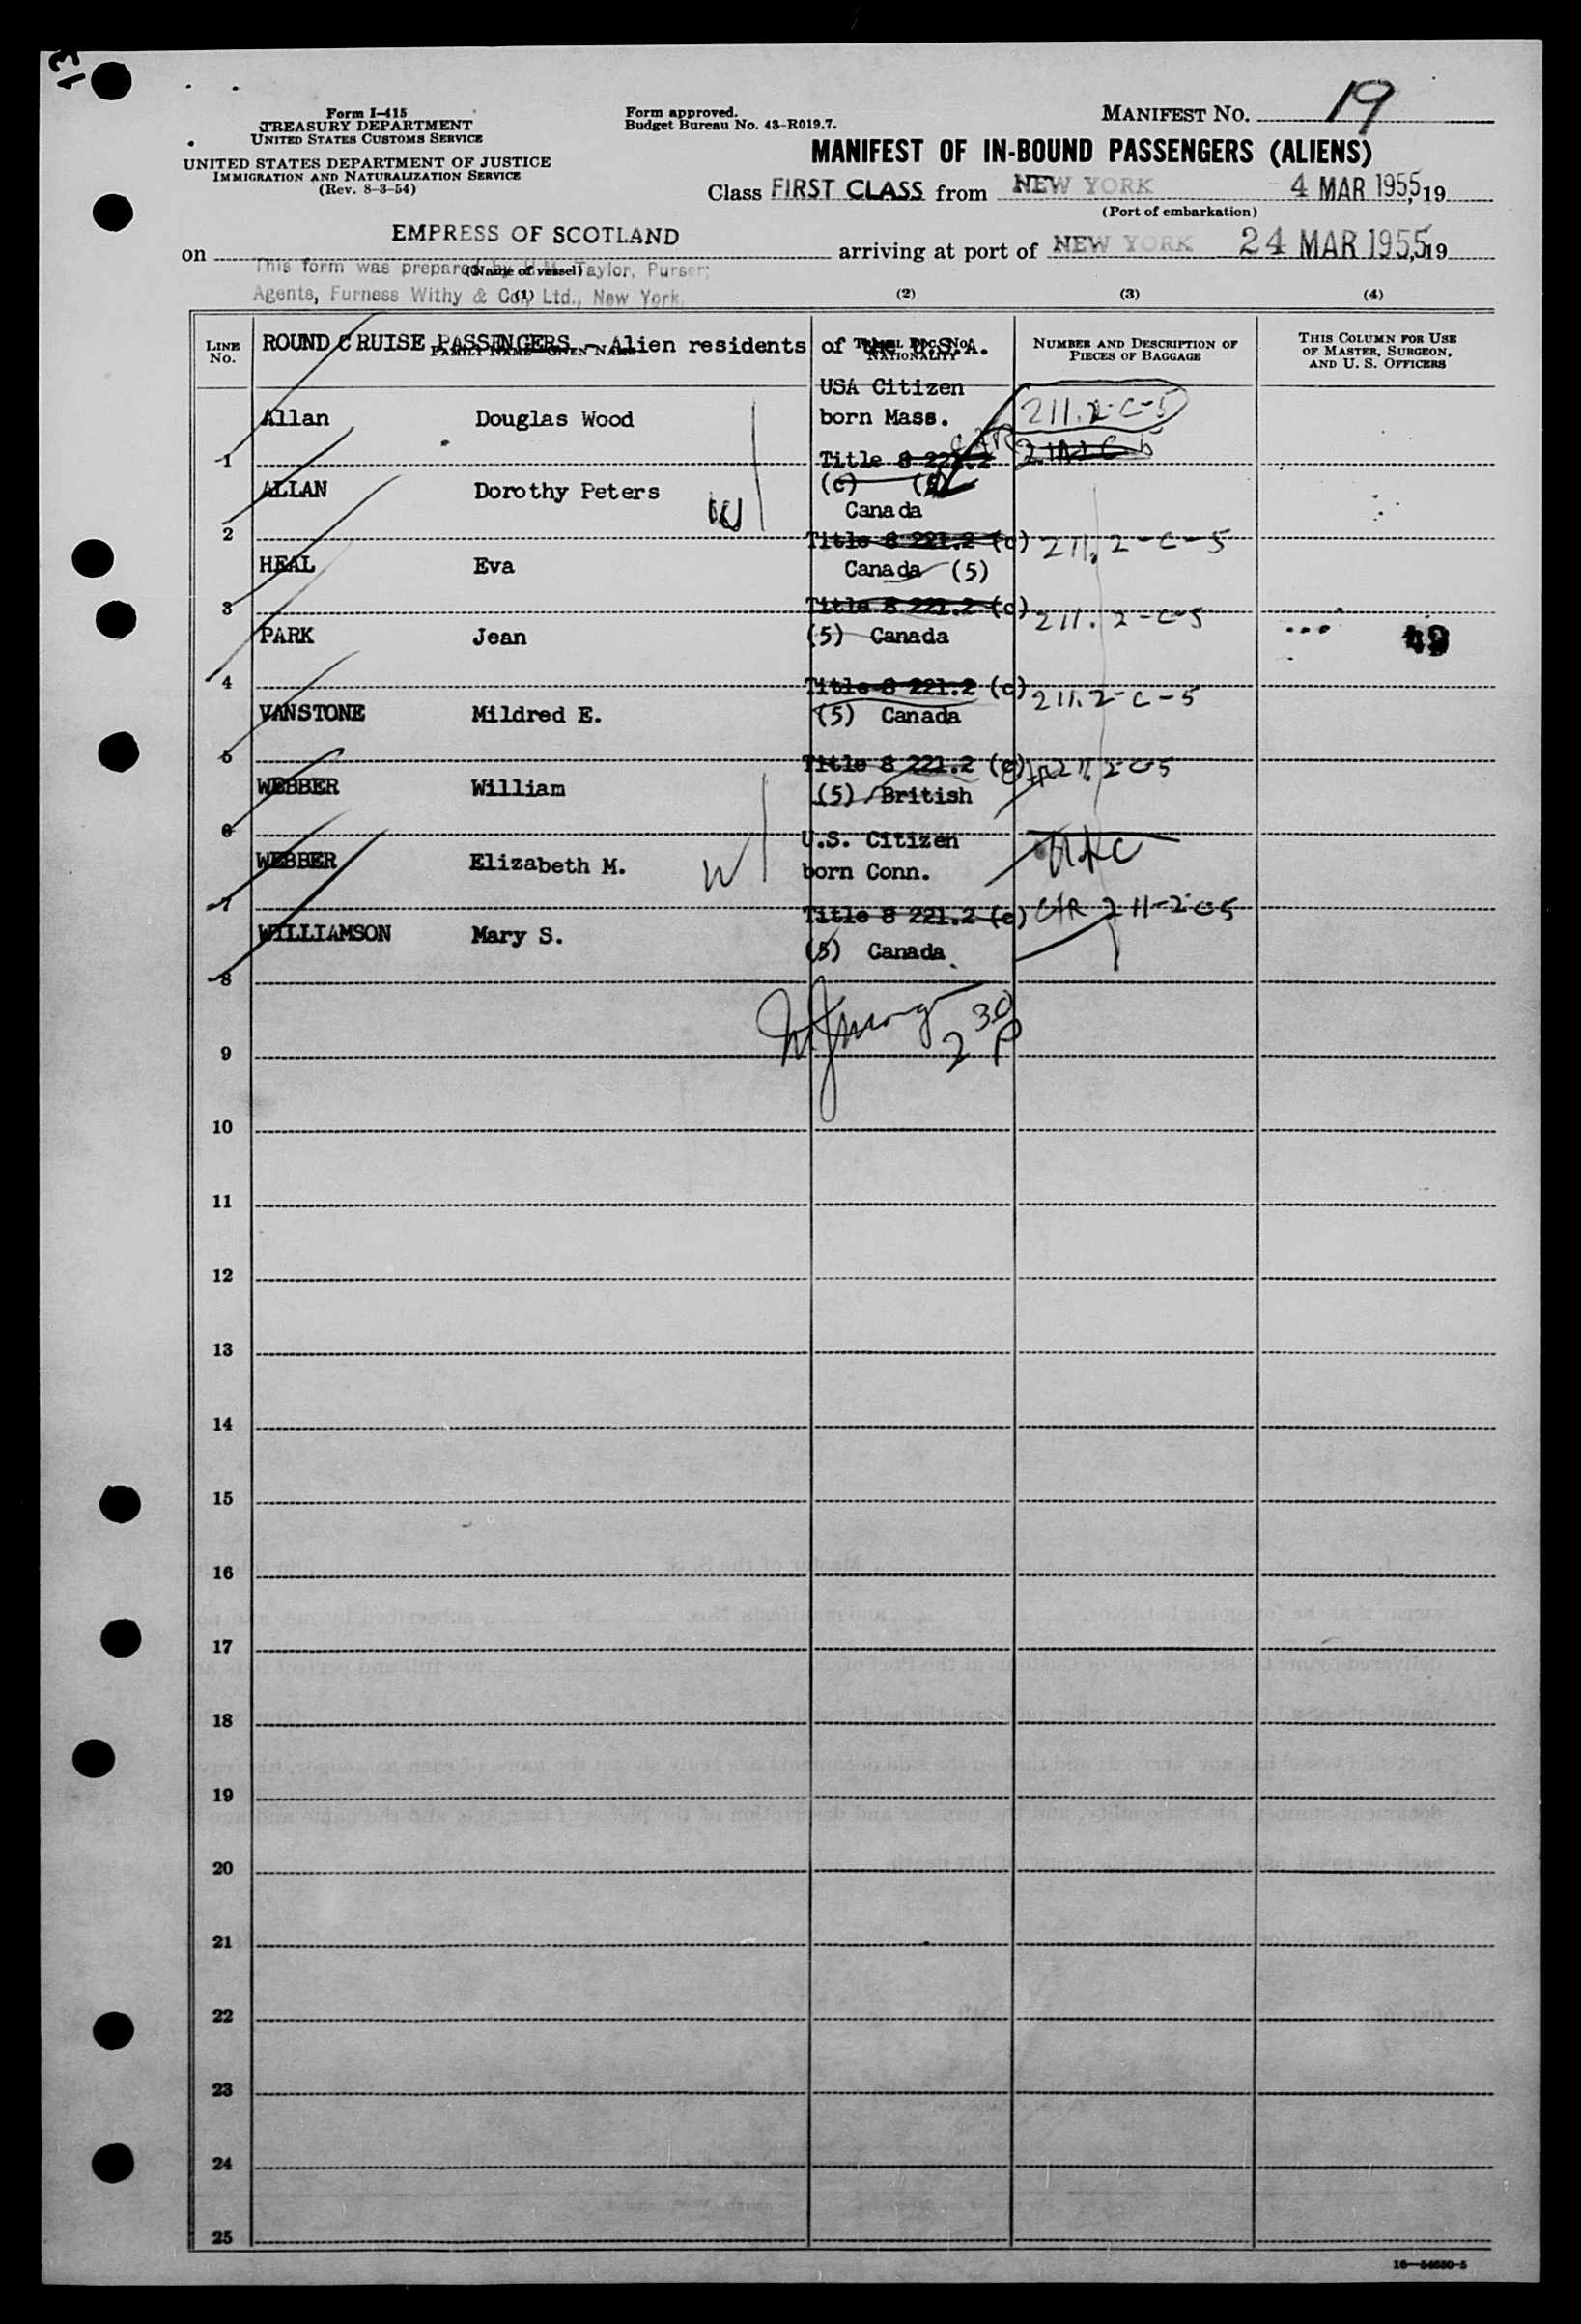 13
Form I-415
TREASURY DEPARTMENT
UNITED STATES CUSTOMS SERVICE
UNITED STATES DEPARTMENT OF JUSTICE
IMMIGRATION AND NATURALIZATION SERVICE
(Rev. 8-3-54)
Form approved.
Budget Bureau No. 43-R019.7.
MANIFEST NO. 19
MANIFEST OF IN-BOUND PASSENGERS (ALIENS)
Class FIRST CLASS from NEW YORK - 4 MAR 1955, 19
(Port of embarkation)
on EMPRESS OF SCOTLAND arriving at port of NEW YORK 24 MAR 1955, 19
(Name of vessel)
This form was prepared by Taylor, Purser;
Agents, Furness Withy & Co., Ltd., New York.
(1) (2) (3) (4)
LINE No.
FAMILY NAME—GIVEN NAME
TRAVEL DOC. NO. NATIONALITY
NUMBER AND DESCRIPTION OF PIECES OF BAGGAGE
THIS COLUMN FOR USE OF MASTER, SURGEON, AND U. S. OFFICERS
ROUND CRUISE PASSENGERS - Alien residents of the U.S.A.
USA Citizen
Allan Douglas Wood born Mass. 211.2-C-5
1 Title 8 221.2
ALLAN Dorothy Peters (c) (5)
W Canada
2 Title 8 221.2 (c) 211.2-C-5
HEAL Eva Canada (5)
3 Title 8 221.2 (c) 211.2-C-5
PARK Jean (5) Canada 49
4 Title 8 221.2 (c) 211.2-C-5
VANSTONE Mildred E. (5) Canada
5 Title 8 221.2 (c) 211.2C5
WEBBER William (5) British
6 U.S. Citizen
WEBBER Elizabeth M. W born Conn.
7 Title 8 221.2 (c) C/R 211-2-C-5
WILLIAMSON Mary S. (5) Canada
8
2 30 P
9
10
11
12
13
14
15
16
17
18
19
20
21
22
23
24
25
16—54630-5